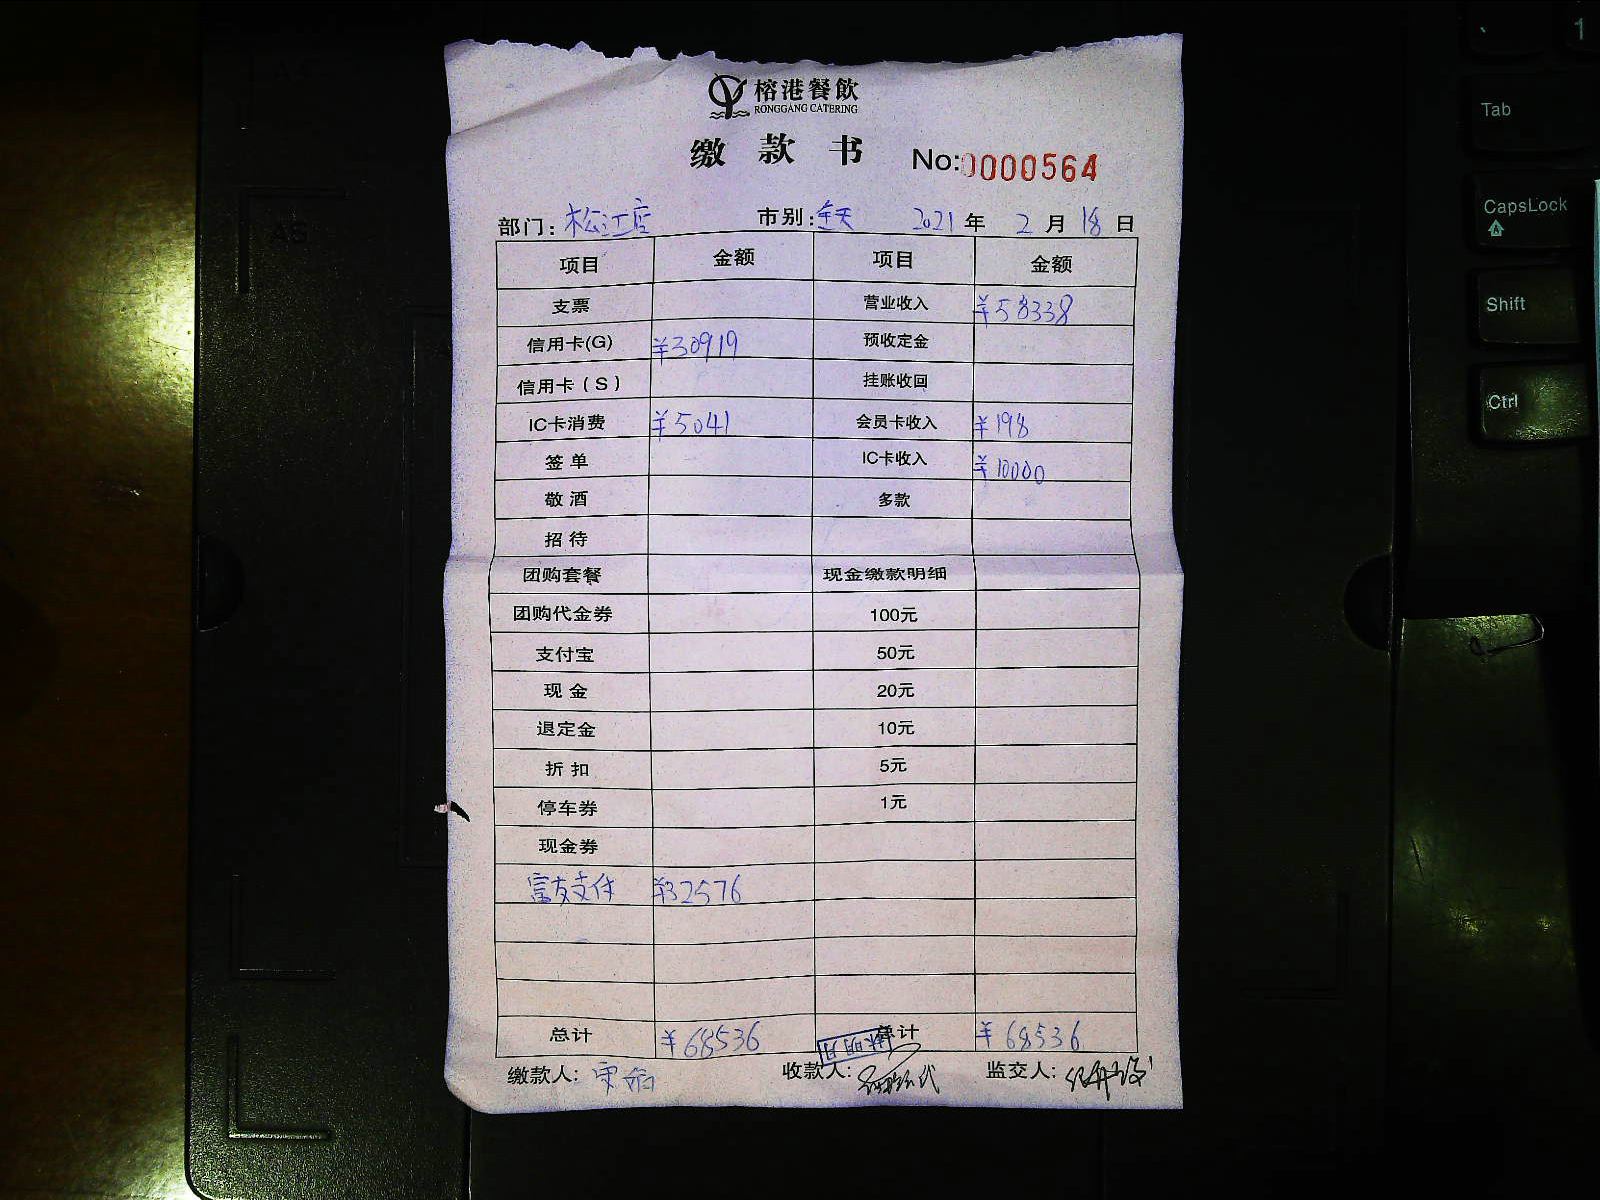 榕港餐飲
RONGGANG CATERING
缴款书
No:0000564
部门: 松江店 市别: 全天 2021年2月18日
项目 金额 项目 金额
支票 营业收入 ¥58338
信用卡(G) ¥30919 预收定金
信用卡(S) 挂账收回
IC卡消费 ¥5041 会员卡收入 ¥198
签单 IC卡收入 ¥10000
敬酒 多款
招待
团购套餐 现金缴款明细
团购代金券 100元
支付宝 50元
现金 20元
退定金 10元
折扣 5元
停车券 1元
现金券
富友支付 ¥32576
总计 ¥68536 总计 ¥68536
缴款人: 收款人: 监交人:
`
1
Tab
CapsLock
Shift
Ctrl
A5